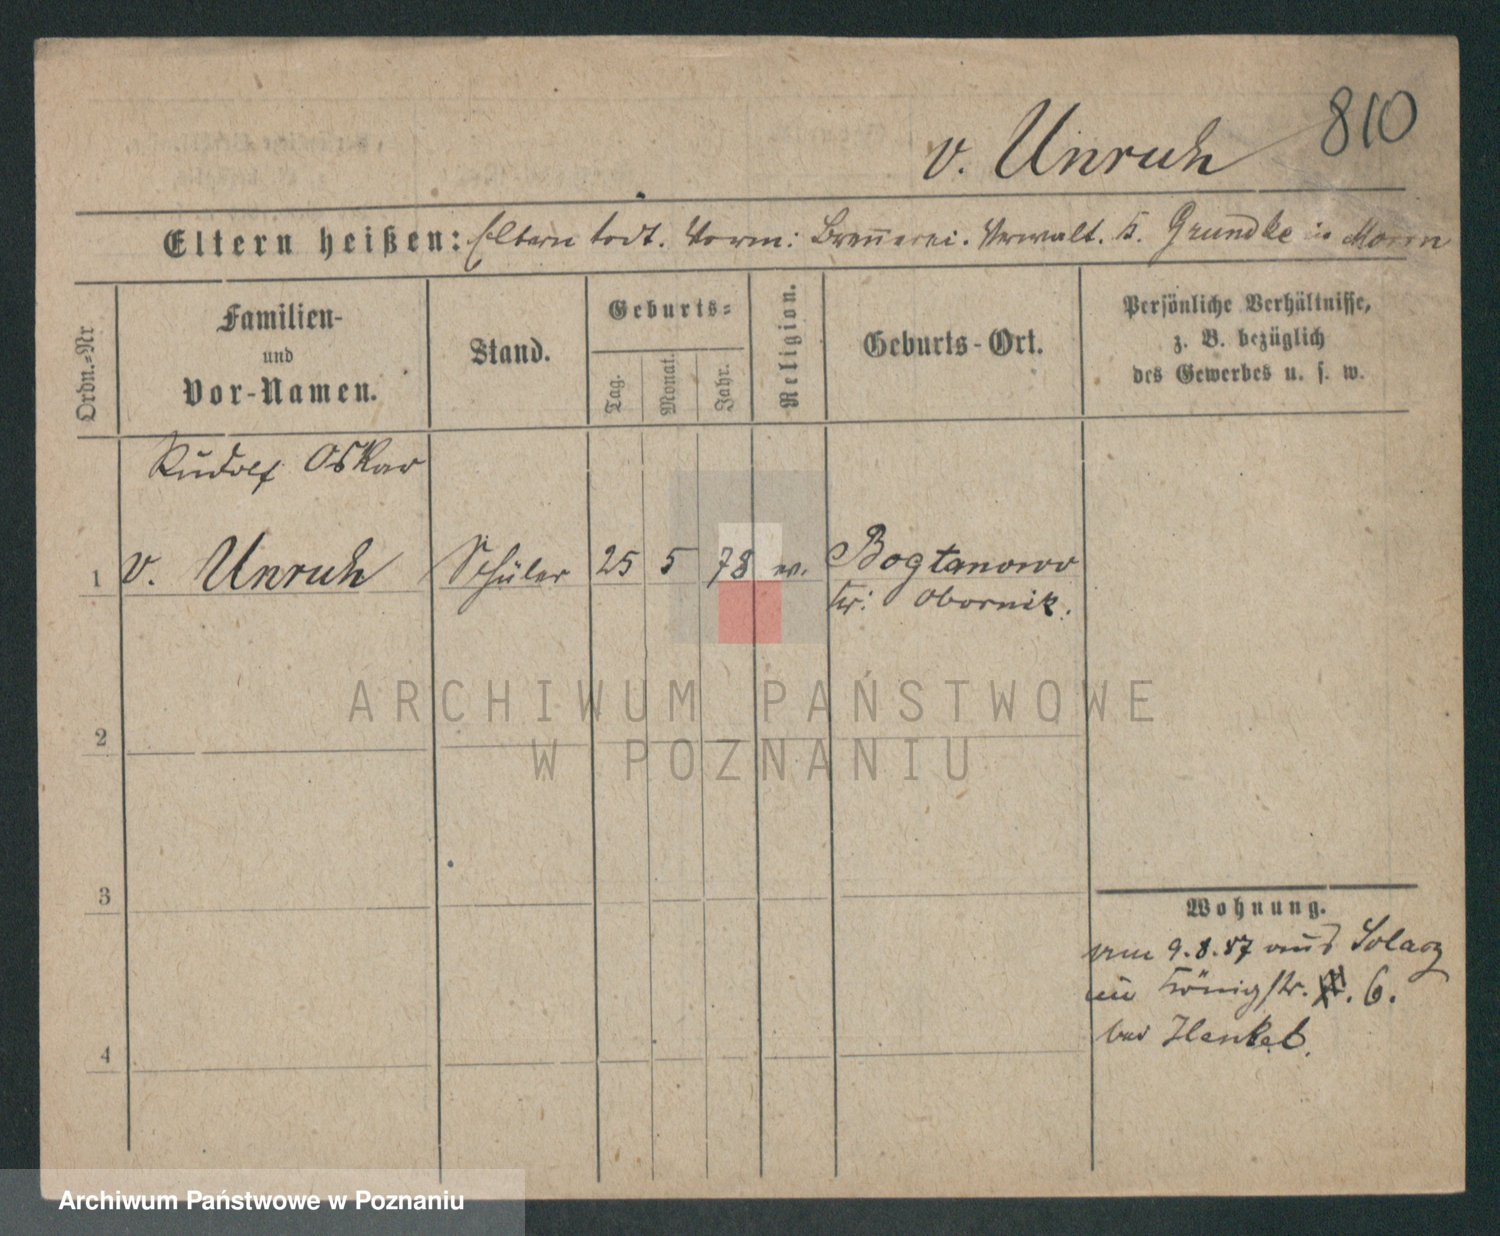 810
v. Unruh
Eltern heißen: Eltern todt. Vorm: Brennerei. Verwalt. H. Grundke in
Ordn.=Nr
Familien-
und
Vor-Namen.
Stand.
Geburts=
Tag.
Monat.
Jahr.
Religion.
Geburts-Ort.
Persönliche Verhältnisse,
z. B. bezüglich
des Gewerbes u. s. w.
Rudolf Oskar
1 v. Unruh Schüler 25 5 78 ev. Bogdanowo
Kr: Obornik.
ARCHIWUM PAŃSTWOWE
W POZNANIU
2
3
Wohnung.
9.8.87 aus
Königstr. 6.
bei Henkel.
4
Archiwum Państwowe w Poznaniu